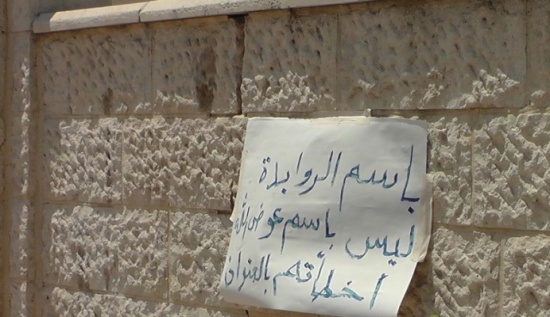 باسم الروابدة
ليس باسم عوض الله
اخطأتم بالعنوان